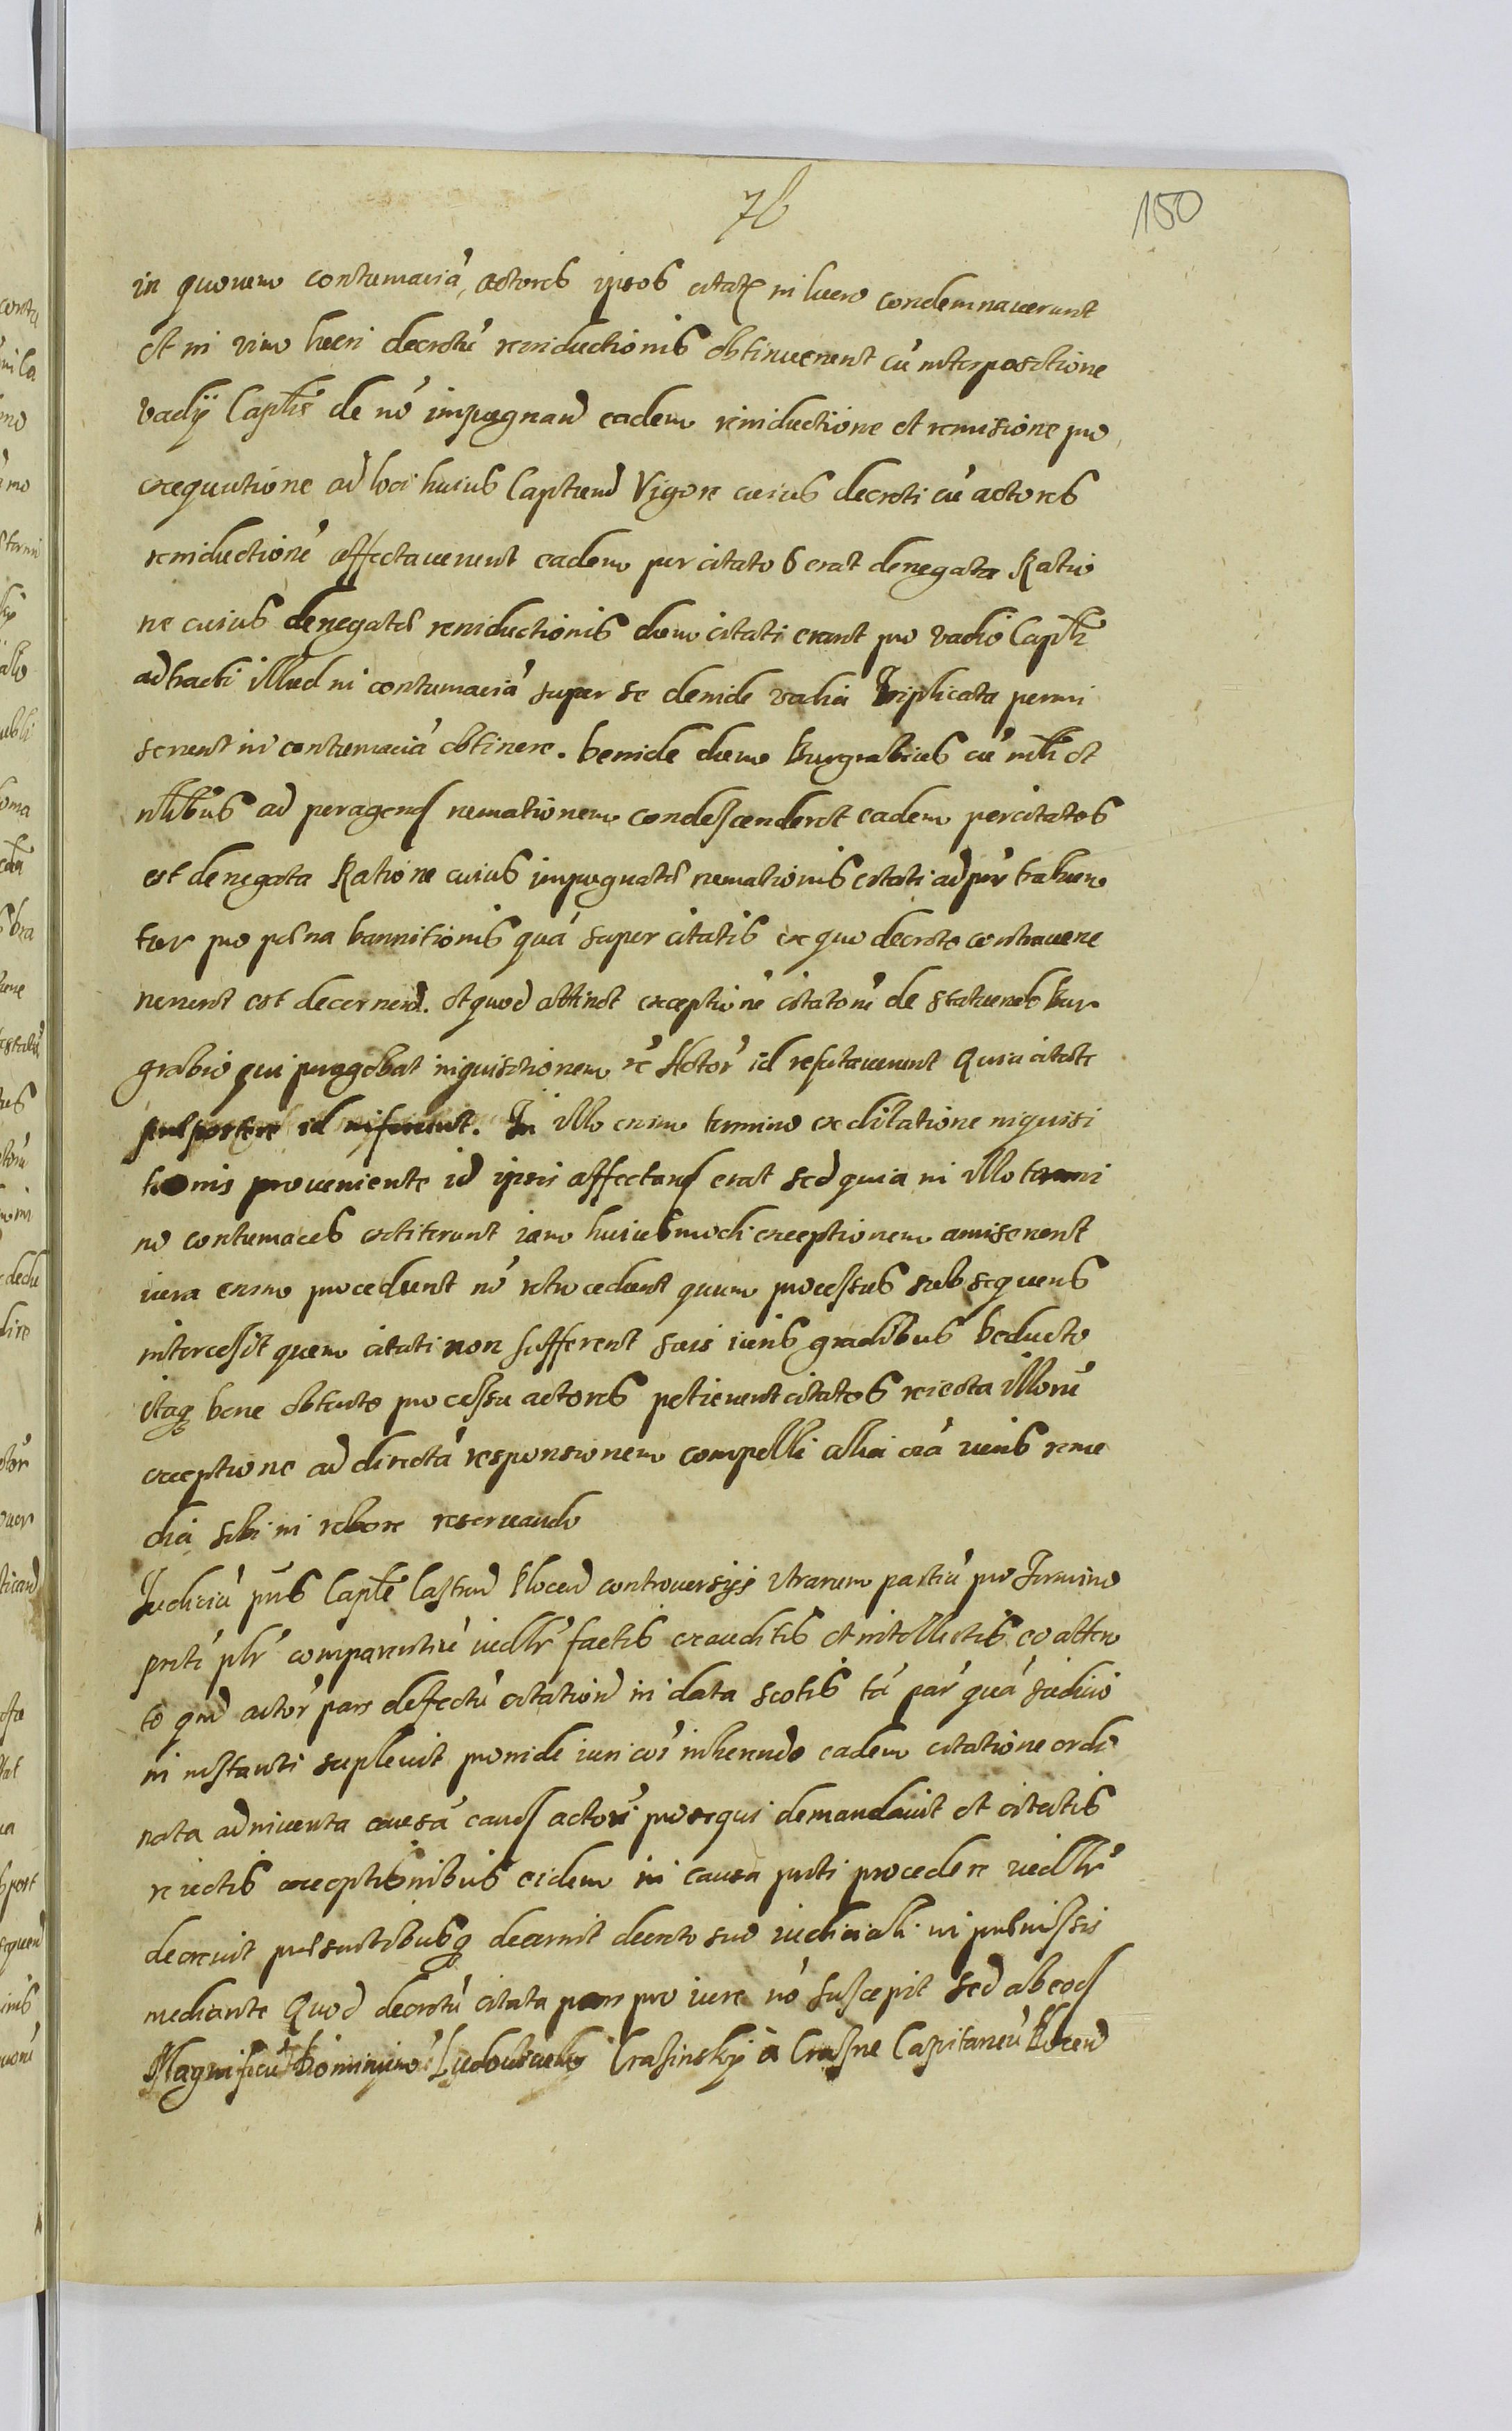 76
150
in quorum contumaciã, actores ipsos citatos in lucro condemnaverunt
et in vim lucri decretũ reinductionis obtinuerunt cũ interpositione
vadij Capitlis de nõ impugnand eadem reinductione et remissione pro
exequutione ad loci huius Captiund Vigore cuius decreti cũ actores
reinductionẽ affectaverunt eadem per citatos erat denegata Ratio
ne cuius denegatæ reinductionis dum citati erant pro vadio Capitli
adhaeti illud in contumaciã super se deinde vadia triplicata permi
serunt in contumaciã obtinere. Deinde dum Burgrabius cũ mli et
nlibus ad peragend remationem condescenderet eadem per citatos
est denegata Ratione cuius impugnatæ remationis citati ad pñs trahun
tur pro pæna bannitionis quã super citatis ex quo decreto contravene
nerunt est decernend. et quod attinet exceptionẽ citatorũ de statuendo Bur
grabio qui peragebat inquisitionem rẽ Actor id refutaverunt Quia citati
post id inferunt. In illo enim termino ex dilatione inquisi
tionis proveniente id ipsis affectand erat sed quia in illo termi
no contumaces extiterunt iam huiusmodi exceptionem amiserunt
iura enim procedunt nõ retrocedunt quum processus subsequens
intercessit quem citati non sufferent suis iuris gradibus Deducto
itaq bene obtento processu actores petierunt citatos reiecta illorũ
exceptione ad directã responsionem compelli alia oĩa iuris reme
dia sibi in robore reservando
Judiciũ pñs Caple Castrnd Plocend controversijs utrarum partiũ pro Termino
pnti plr comparentiũ iudlr factis exauditis et intellectis eo atten
to qnd actor pars defectũ citationd in data scotis tã par quã iudicio
in instanti suplevit proinde iuri coi inherendo eadem citatione ordi
nata adinventa causã caud actori prosequi demandavit et citatis
reiectis exceptionibus eidem in causa pnti procedere iudlr
decrevit presentibusq decernit decreto suo iudiciali in præmissis
mediante Quod decretũ citata pars pro iure nõ suscepit sed ab eod
Magnificũ Dominum Ludovicum Crasinsky à Crasne Capitaneũ Plocend